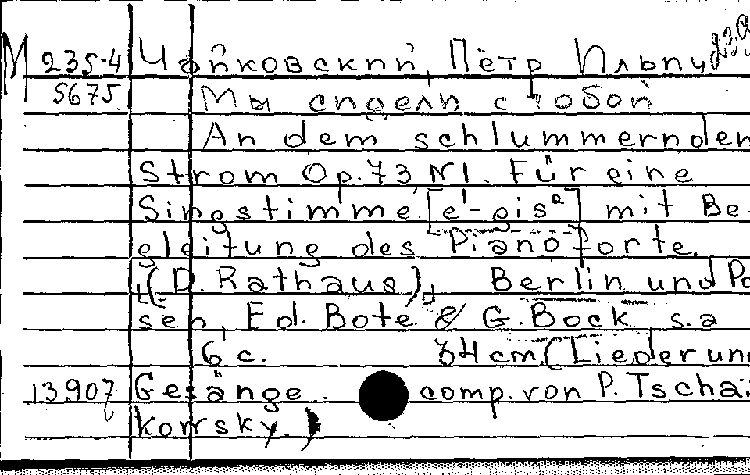 М 235-4 Чайковский, Пётр Ильич
5675 Мы сидели с тобой
An dem schlummernden
Strom Op. 73 N1. Für eine
Singstimme [e'-gis²] mit Be-
gleitung des Pianoforte.
(D. Rathaus), Berlin und Po-
sen, Ed. Bote & G. Bock s.a
6 c. 34 cm. (Lieder und
13907 Gesänge. comp. von P. Tschai-
kowsky.)